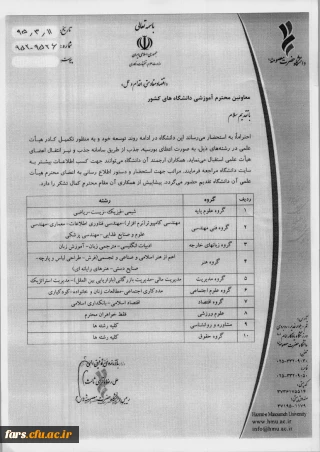 باسمه تعالی
تاریخ: ۹۵٫۳٫۱۱
شماره:
پیوست:
جمهوری اسلامی ایران
معاونین محترم آموزشی دانشگاه های کشور
با تقدیم سلام
احتراماً، به استحضار می‌رساند این دانشگاه در ادامه روند توسعه خود و به منظور تکمیل کادر هیأت
علمی در رشته‌های ذیل به صورت اعطای بورسیه، جذب از طریق سامانه جذب و نیز انتقال اعضای
هیأت علمی استقبال می‌نماید. همکاران ارجمند آن دانشگاه می‌توانند جهت کسب اطلاعات بیشتر به
سایت دانشگاه مراجعه فرمایند. مراتب جهت استحضار و دستور اطلاع رسانی به اعضای محترم هیأت
علمی آن دانشگاه تقدیم حضور می‌گردد. پیشاپیش از همکاری آن مقام محترم کمال تشکر را دارد.
ردیف گروه رشته
۱ گروه علوم پایه شیمی-فیزیک-زیست-ریاضی
۲ گروه فنی مهندسی مهندسی کامپیوتر(نرم افزار)-مهندسی فناوری اطلاعات-معماری-مهندسی
علوم و صنایع غذایی-مهندسی پزشکی
۳ گروه زبانهای خارجه ادبیات انگلیسی-مترجمی زبان-آموزش زبان
۴ گروه هنر اعم از هنر اسلامی و صناعی و تجسمی(فرش-طراحی لباس و پارچه-
صنایع دستی-هنرهای رایانه ای)
۵ گروه مدیریت مدیریت مالی-مدیریت بازرگانی(بازاریابی بین الملل)-مدیریت استراتژیک
۶ گروه علوم اجتماعی مددکاری اجتماعی-مطالعات زنان و خانواده-کودکیاری
۷ گروه اقتصاد اقتصاد اسلامی-بانکداری اسلامی
۸ علوم ورزشی فقط خواهران محترم
۹ مشاوره و روانشناسی کلیه رشته ها
۱۰ گروه حقوق کلیه رشته ها
Hazrate Masoumeh University
www.hmu.ac.ir
info@hmu.ac.ir
fars.cfu.ac.ir